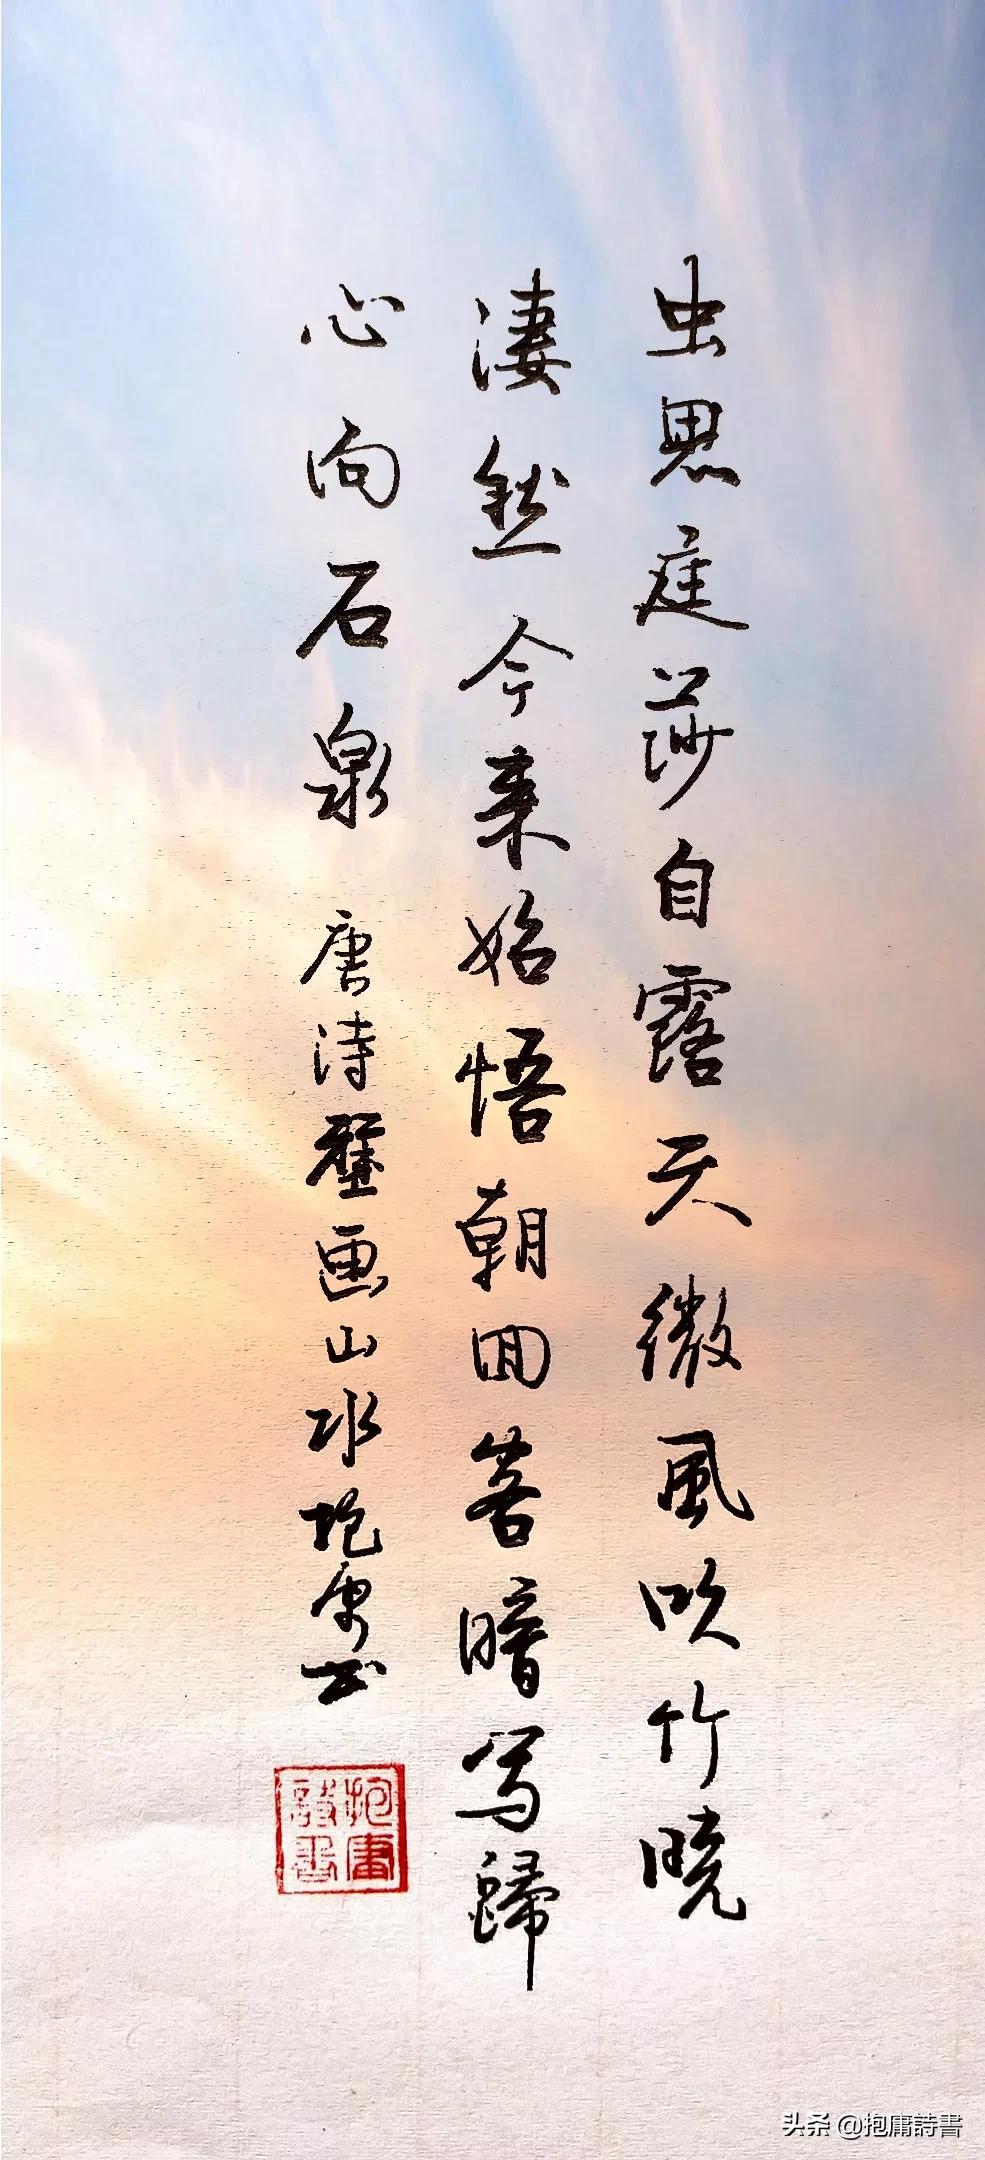 虫思庭莎自露天微風吹竹曉
淒然今来始悟朝回客暗写歸
心向石泉 唐诗壁画山水抱庸书
抱庸
詩書
头条 @抱庸詩書